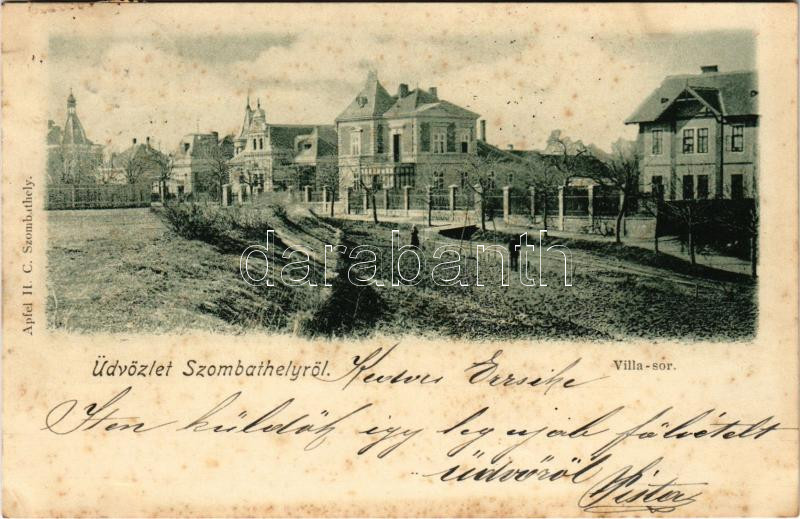 Apfel H. C. Szombathely.
darabanth
Üdvözlet Szombathelyről.
Villa-sor.
Kedves Erzsike
Itten küldök egy legujab fölvételt
üdvözöl